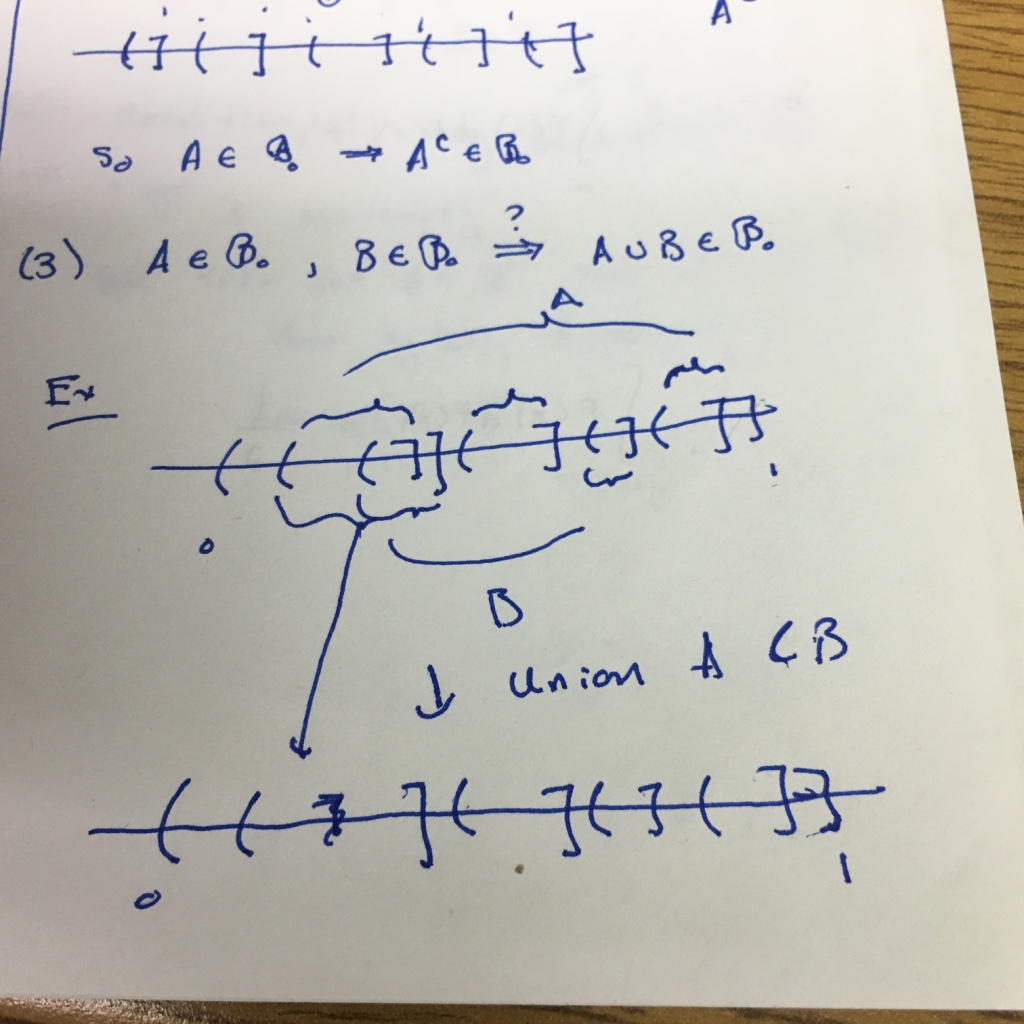 A
( ] ( ] ( ] ( ] ( ]
So A ∈ B₀ → Aᶜ ∈ B₀
(3) A ∈ B₀ , B ∈ B₀ ?⇒ A ∪ B ∈ B₀
A
Ex
( ( ( ] ] ( ] ( ] ( ] ]
0 1
B
↓ Union A ( B
( ( ] ( ] ( ] ( ] ]
0 1